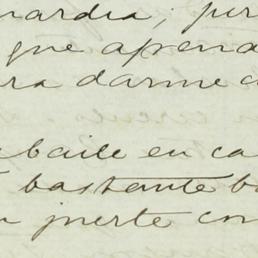 uardia; per
que apena
ra darme c
baile en ca
bastante b
fuerte con